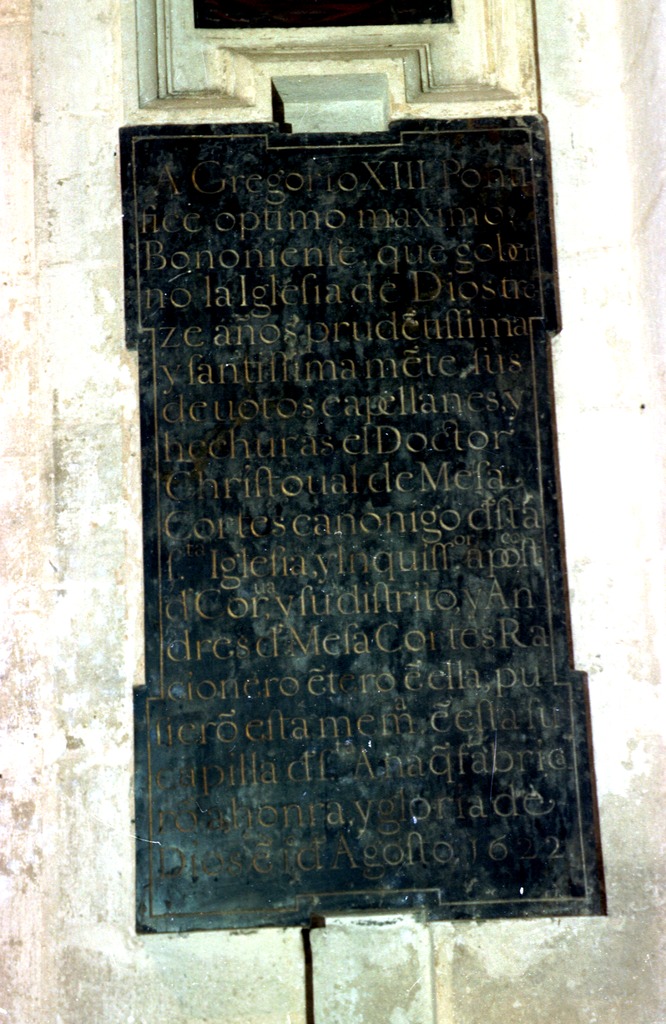 A Gregorio XIII Ponti
fice optimo maximo
Bononienſe, que gober
no la Igleſia de Dios tre
ze años prudẽtiſſima
y ſantiſſima mẽte, ſus
deuotos capellanes, y
hechuras el Doctor
Chriſtoual de Meſa
Cortes canonigo d̃ſta
ſ.ta Igleſia, y Inquiſſ.or apoſt.co
d̃ Cor.ua, y ſu diſtrito, y An
dres d̃ Meſa Cortes Ra
cionero ẽtero ẽ ella, pu
ſierõ eſta mem.a ẽ eſta ſu
capilla d̃ ſ. Ana q̃ fabrica
rõ a honra, y gloria de
Dios ẽ Agoſto, 1622